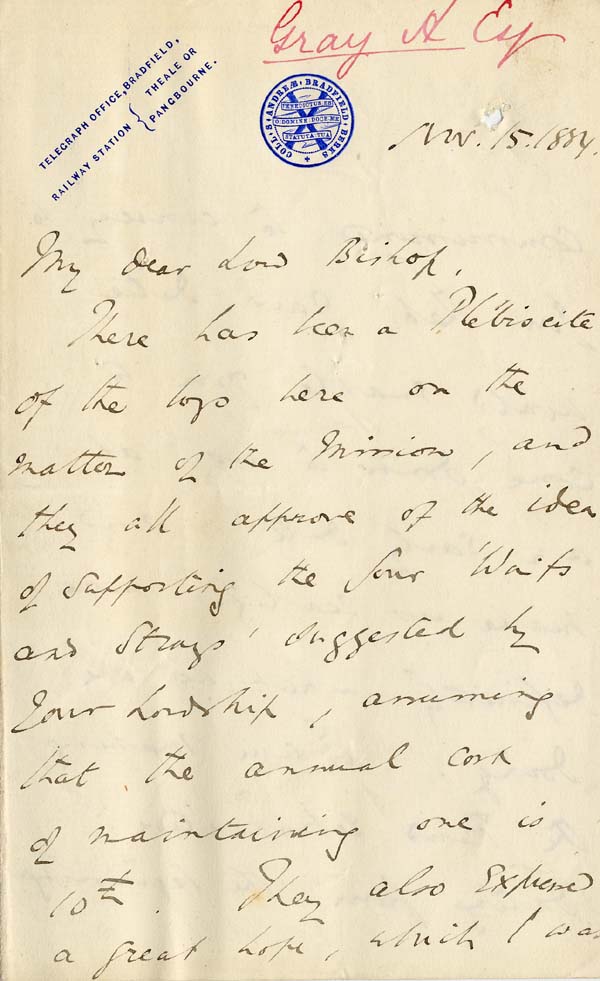 Gray A Esq
TELEGRAPH OFFICE, BRADFIELD,
RAILWAY STATION { THEALE OR
PANGBOURNE.
COLL: S: ANDREÆ: BRADFIELD: BERKS
BENEDICTUS ES
O: DOMINE: DOCE: ME
STATUTA: TUA
Nov. 15. 1884.
My dear Lord Bishop,
There has been a Plébiscite
of the boys here on the
matter of the Mission, and
they all approve of the idea
of supporting the four 'Waifs
and Strays' suggested by
Your Lordship, assuming
that the annual cost
of maintaining one is
10£. They also expressed
a great hope, which I was